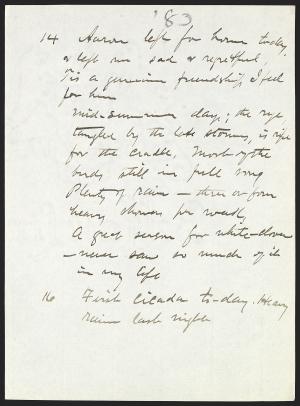 '83
14 Aaron left for home today,
& left me sad & regretful,
Tis a genuine friendship I feel
for him
Mid-summer days; the rye,
tangled by the late storms, is ripe
for the cradle. Most of the
birds still in full song
Plenty of rain – three or four
heavy showers per week,
A great season for white-clover
– never saw so much of it
in my life
16 First Cicada to-day. Heavy
rain last night